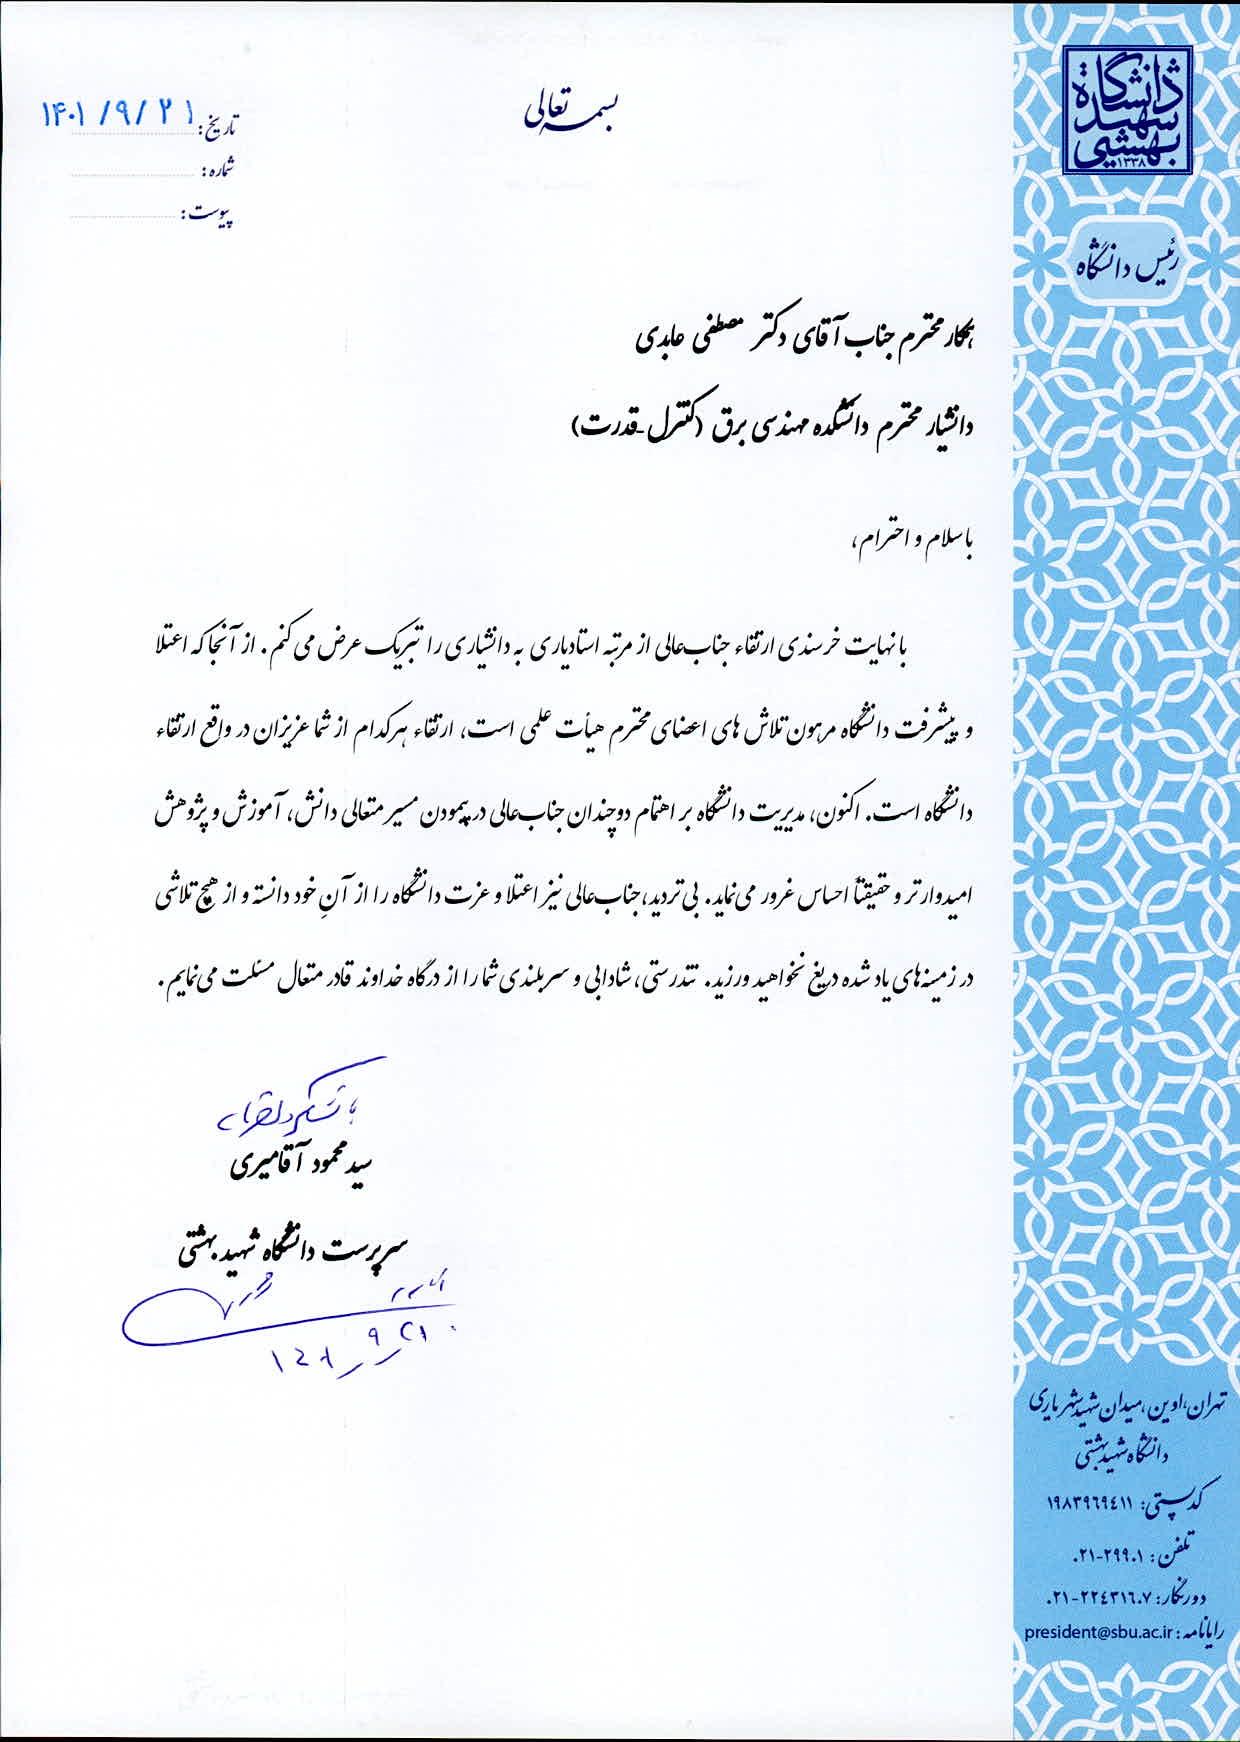 دانشگاه
شهید
بهشتی
۱۳۳۸
رئیس دانشگاه
بسمه تعالی
تاریخ: ۱۴۰۱/۹/۲۱
شماره:
پیوست:
همکار محترم جناب آقای دکتر مصطفی عابدی
دانشیار محترم دانشکده مهندسی برق (کنترل-قدرت)
با سلام و احترام،
با نهایت خرسندی ارتقاء جناب‌عالی از مرتبه استادیاری به دانشیاری را تبریک عرض می‌کنم. از آنجا که اعتلا
و پیشرفت دانشگاه مرهون تلاش های اعضای محترم هیأت علمی است، ارتقاء هرکدام از شما عزیزان در واقع ارتقاء
دانشگاه است. اکنون، مدیریت دانشگاه بر اهتمام دوچندان جناب‌عالی در پیمودن مسیر متعالی دانش، آموزش و پژوهش
امیدوارتر و حقیقتاً احساس غرور می‌نماید. بی‌تردید، جناب‌عالی نیز اعتلا و عزت دانشگاه را از آنِ خود دانسته و از هیچ تلاشی
در زمینه‌های یاد شده دریغ نخواهید ورزید. تندرستی، شادابی و سربلندی شما را از درگاه خداوند قادر متعال مسئلت می‌نمایم.
با تشکر
سید محمود آقامیری
سرپرست دانشگاه شهید بهشتی
۱۴۰۱/۹/۲۱
تهران، اوین، میدان شهید شهریاری
دانشگاه شهید بهشتی
کد پستی: ۱۹۸۳۹۶۹۴۱۱
تلفن: ۰۲۱-۲۹۹۰۱
دورنگار: ۰۲۱-۲۲۴۳۱۶۰۷
رایانامه: president@sbu.ac.ir